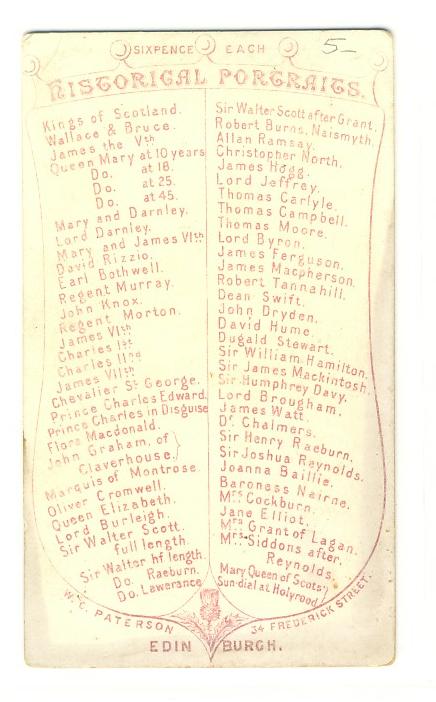 SIXPENCE EACH
5-
HISTORICAL PORTRAITS.
Kings of Scotland.
Wallace & Bruce.
James the Vth
Queen Mary at 10 years
Do. at 18.
Do. at 25.
Do. at 45.
Mary and Darnley.
Lord Darnley.
Mary and James VIth
David Rizzio.
Earl Bothwell.
Regent Murray.
John Knox.
Regent Morton.
James VIth
Charles Ist
Charles IInd
James VIIth
Chevalier St George.
Prince Charles Edward.
Prince Charles in Disguise
Flora Macdonald.
John Graham, of }
Claverhouse.}
Marquis of Montrose.
Oliver Cromwell.
Queen Elizabeth.
Lord Burleigh.
Sir Walter Scott.
full length.
Sir Walter hf length.
Do. Raeburn.
Do. Lawerance
Sir Walter Scott after Grant.
Robert Burns. Naismyth.
Allan Ramsay.
Christopher North.
James Hogg.
Lord Jeffrey.
Thomas Carlyle.
Thomas Campbell.
Thomas Moore.
Lord Byron.
James Ferguson.
James Macpherson.
Robert Tannahill.
Dean Swift.
John Dryden.
David Hume.
Dugald Stewart.
Sir William Hamilton.
Sir James Mackintosh.
Sir Humphrey Davy.
Lord Brougham.
James Watt.
Dr Chalmers.
Sir Henry Raeburn.
Sir Joshua Reynolds.
Joanna Baillie.
Baroness Nairne.
Mrs Cockburn.
Jane Elliot.
Mrs Grant of Lagan.
Mrs Siddons after.
Reynolds.
Mary Queen of Scots,
Sun-dial at Holyrood
W. C. PATERSON 34 FREDERICK STREET.
EDINBURGH.